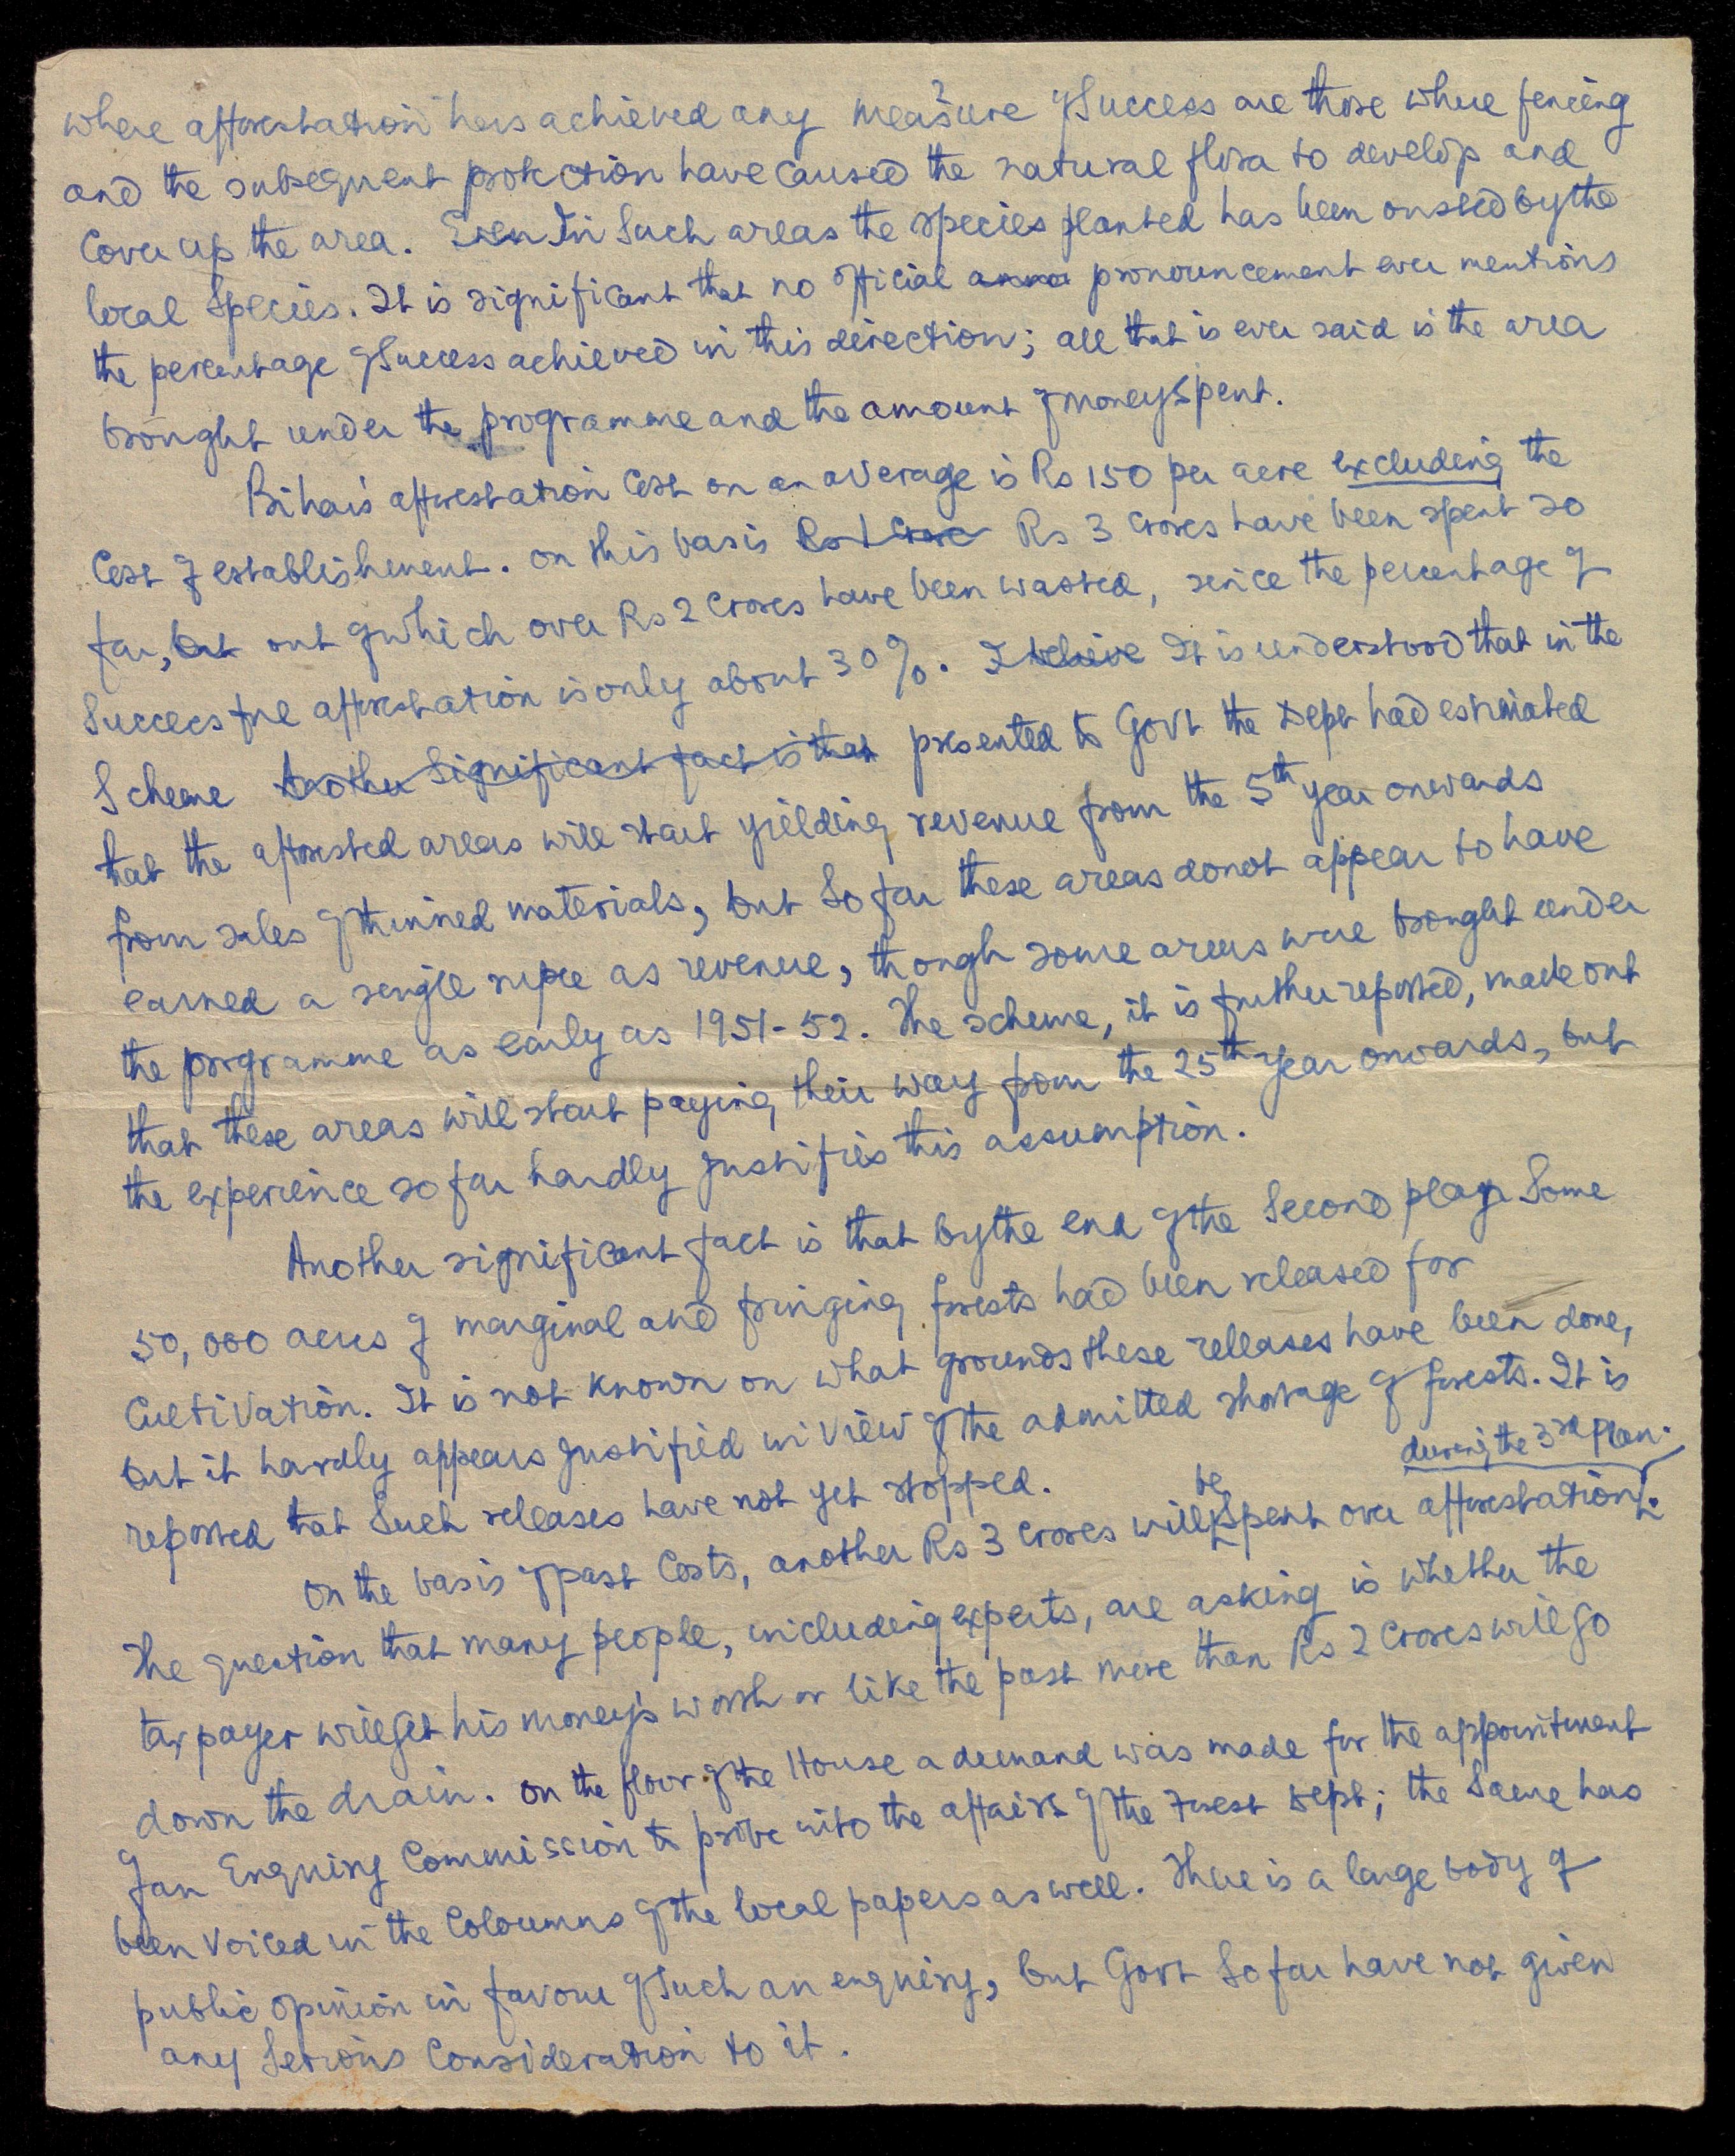 2
where afforestation has achieved any measure of Success are those where fencing
and the subsequent protection have caused the natural flora to develop and
Cover up the area. Even In Such areas the species planted has been ousted by the
local Species. It is significant that no official anno pronouncement ever mentions
the percentage of Success achieved in this direction; all that is ever said is the area
brought under the programme and the amount of money Spent.
Bihar's afforestation Cost on an average is Rs 150 per acre excluding the
Cost of establishment. On this basis Rs 1 Crore Rs 3 Crores have been spent so
far, but out of which over Rs 2 Crores have been wasted, since the percentage of
Successful afforestation is only about 30%. I believe It is understood that in the
Scheme Another Significant fact is that presented to Govt the Dept had estimated
that the afforested areas will start yielding revenue from the 5th year onwards
from sales of thinned materials, but So far these areas do not appear to have
earned a single rupee as revenue, though some areas were brought under
the programme as early as 1951-52. The scheme, it is further reported, made out
that these areas will start paying their way from the 25th year onwards, but
the experience so far hardly justifies this assumption.
Another significant fact is that by the end of the Second plan Some
50,000 acres of marginal and fringing forests had been released for
Cultivation. It is not known on what grounds these releases have been done,
but it hardly appears justified in view of the admitted shortage of forests. It is
reported that Such releases have not yet stopped.
during the 3rd Plan.
On the basis of past Costs, another Rs 3 Crores will be Spent over afforestation.
The question that many people, including experts, are asking is whether the
tax payer will get his money's worth or like the past more than Rs 2 Crores will go
down the drain. On the floor of the House a demand was made for the appointment
of an Enquiry Commission to probe into the affairs of the Forest Dept; the Same has
been Voiced in the Coloumns of the local papers as well. There is a large body of
public opinion in favour of Such an enquiry, but Govt So far have not given
any Serious Consideration to it.